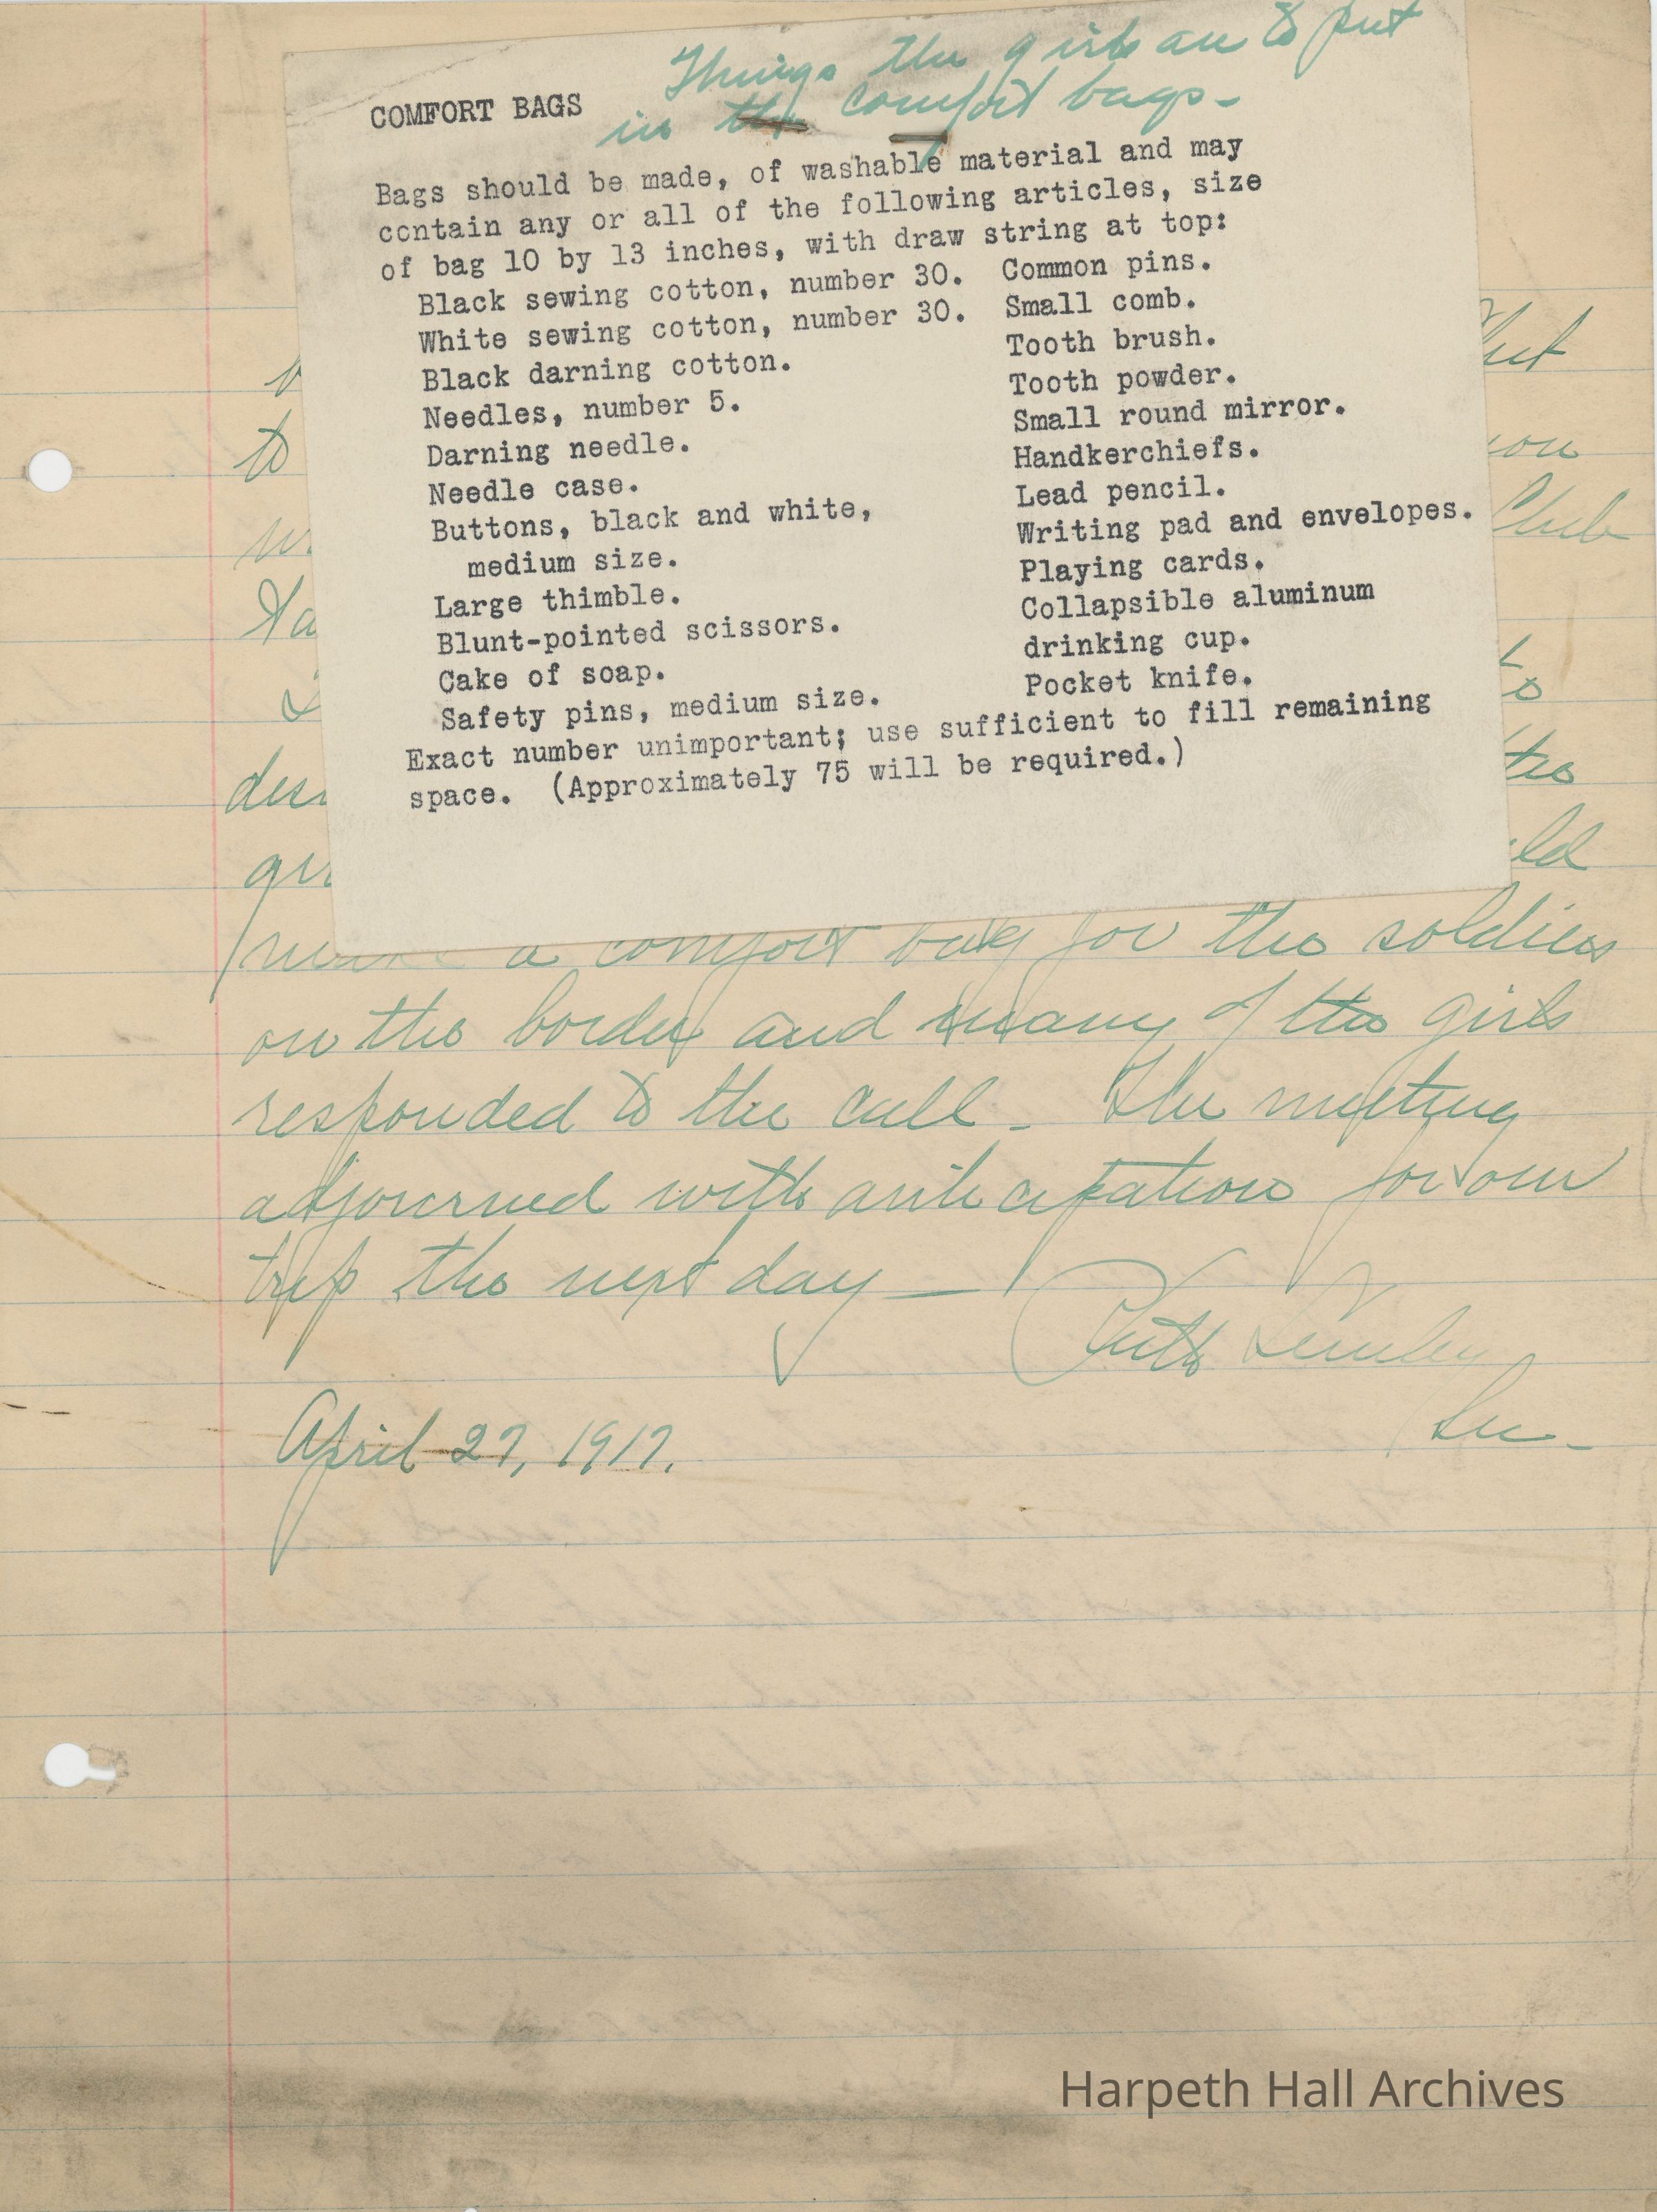 Things the girls are to put
in the comfort bags-
COMFORT BAGS
Bags should be made, of washable material and may
contain any or all of the following articles, size
of bag 10 by 13 inches, with draw string at top:
Black sewing cotton, number 30. Common pins.
White sewing cotton, number 30. Small comb.
Black darning cotton. Tooth brush.
Needles, number 5. Tooth powder.
Darning needle. Small round mirror.
Needle case. Handkerchiefs.
Buttons, black and white, Lead pencil.
medium size. Writing pad and envelopes.
Large thimble. Playing cards.
Blunt-pointed scissors. Collapsible aluminum
Cake of soap. drinking cup.
Safety pins, medium size. Pocket knife.
Exact number unimportant; use sufficient to fill remaining
space. (Approximately 75 will be required.)
to
Club
a comfort bag for the soldiers
on the border and many of the girls
responded to the call- The meeting
adjourned with anticipations for our
trip the next day —
Ruth
April 27, 1917.
Harpeth Hall Archives